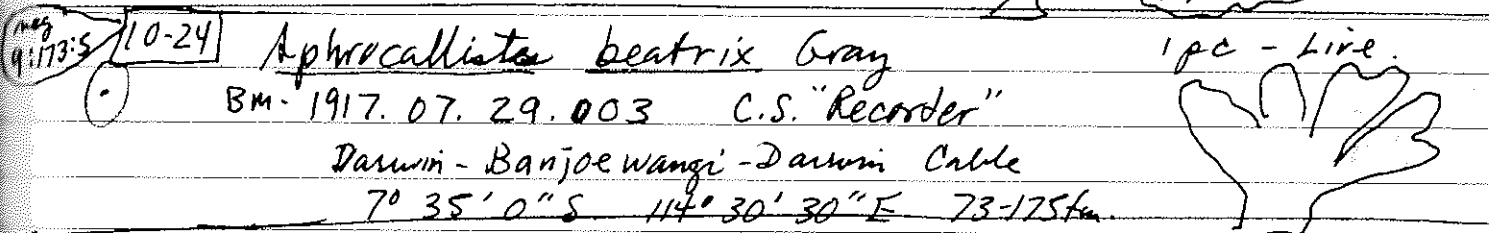 neg 10-24 Aphrocallistes beatrix Gray 1 pc - Live.
9:173:5
BM- 1917.07.29.003 C.S. "Recorder"
Darwin - Banjoewangi - Darwin Cable
7° 35' 0" S 114° 30' 30" E 73-175 fm.